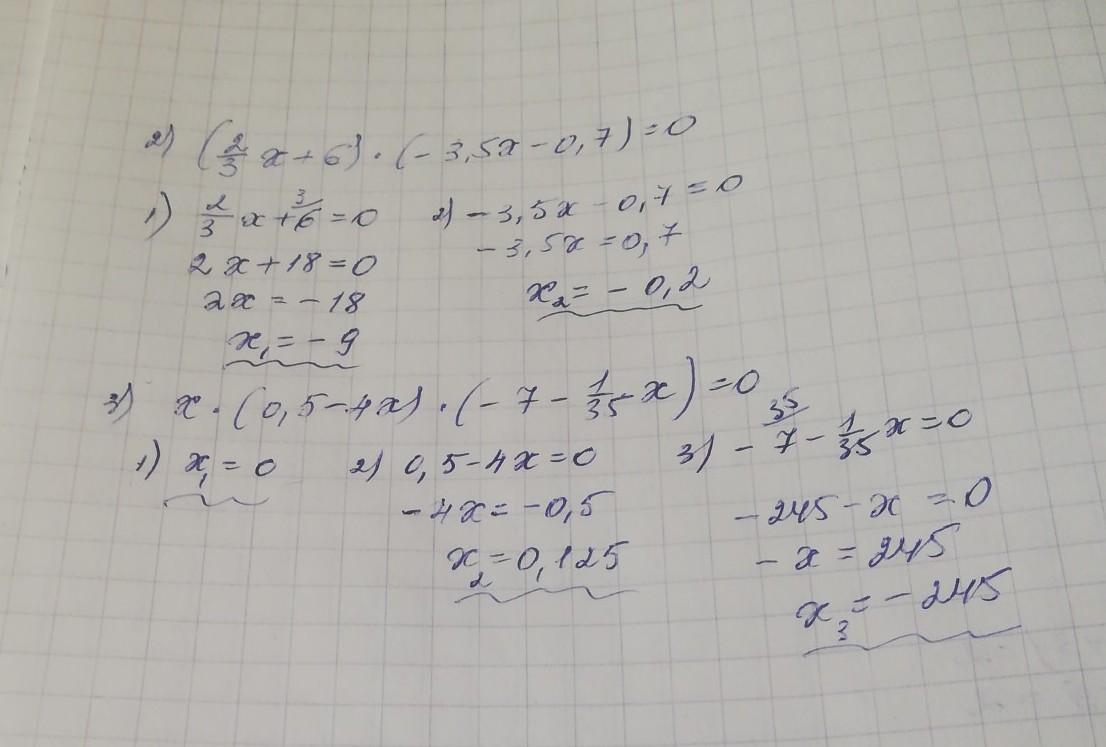 2) (2/3 x + 6) · (- 3,5x - 0,7) = 0
1) 2/3 x + 6 = 0 2) - 3,5x - 0,7 = 0
3
2x + 18 = 0 - 3,5x = 0,7
2x = - 18 x₂ = - 0,2
x₁ = - 9
3) x · (0,5 - 4x) · (- 7 - 1/35 x) = 0
35
1) x₁ = 0 2) 0,5 - 4x = 0 3) - 7 - 1/35 x = 0
- 4x = - 0,5 - 245 - x = 0
x₂ = 0,125 - x = 245
x₃ = - 245